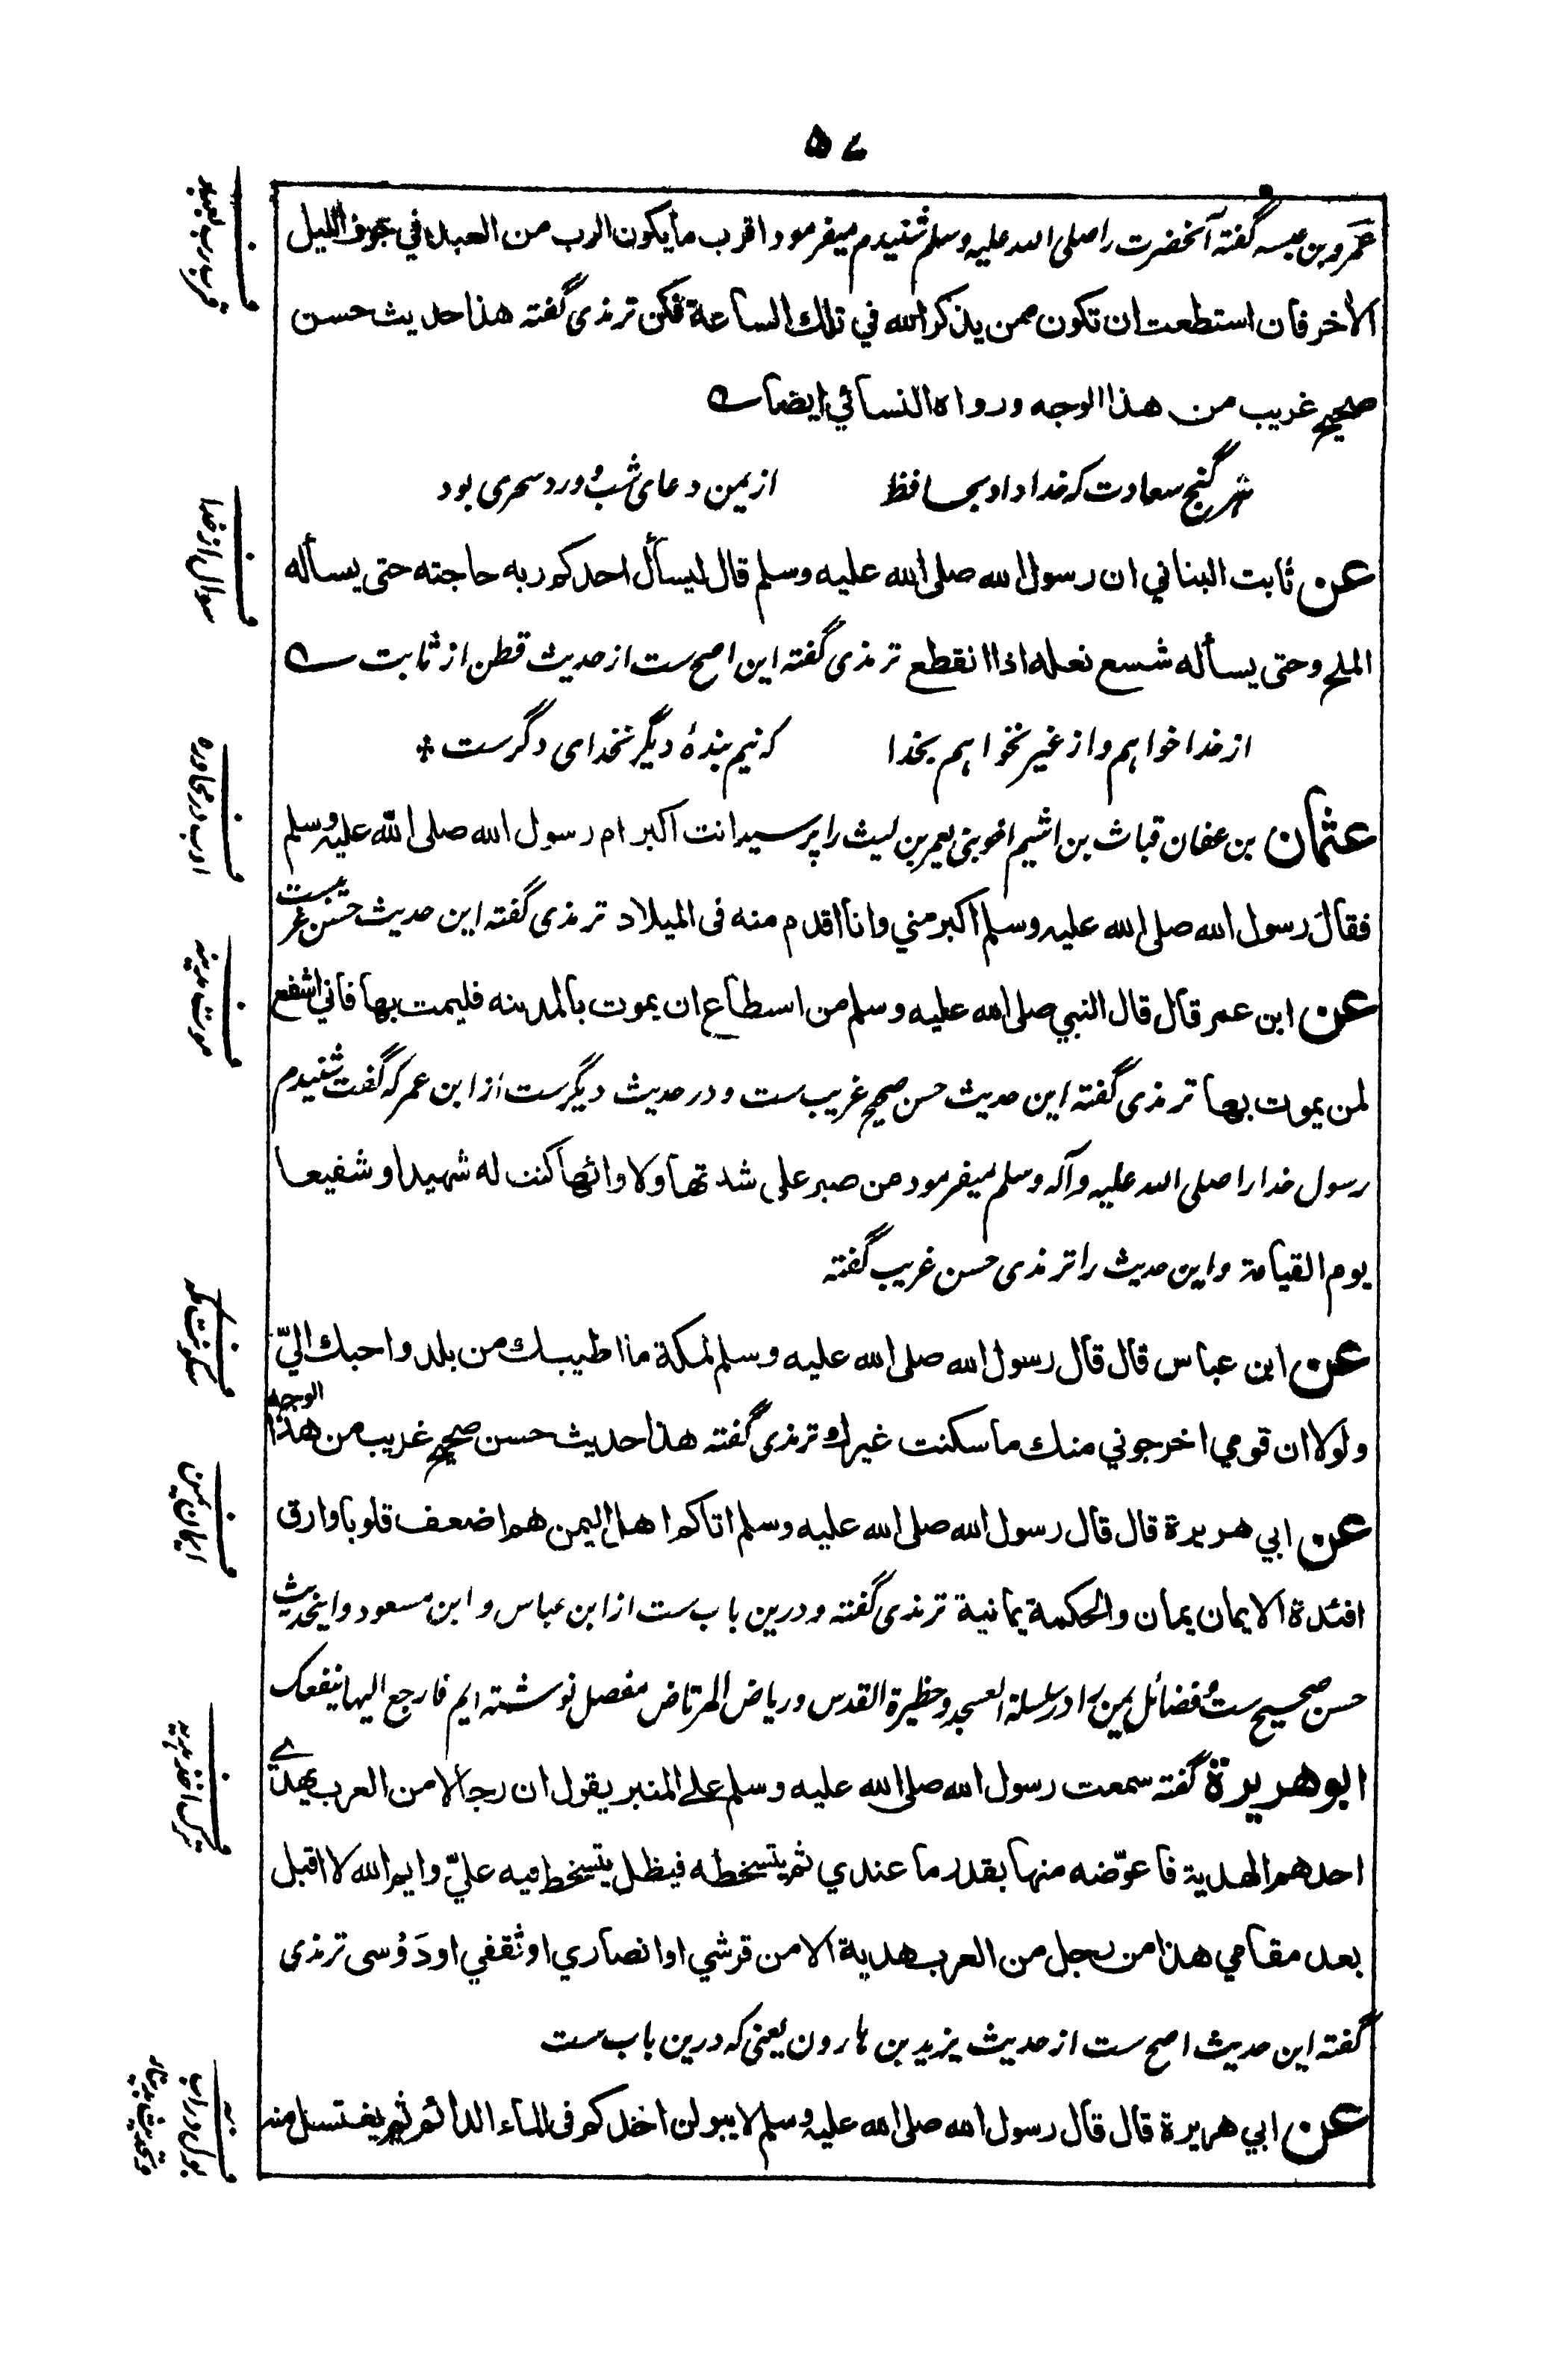 ۵۷
عمرو بن عبسه گفته آنحضرت را صلی الله علیه وسلم شنیدم میفرمود اقرب ما يكون الرب من العبد في جوف الليل
الآخر فان استطعت ان تكون ممن يذكر الله في تلك الساعة فكن ترمذی گفته هذا حديث حسن
صحيح غريب من هذا الوجه ورواه النسائي ايضا
هر گنج سعادت که خدا داد بحافظ از یمن دعای شب و ورد سحری بود
عن ثابت البناني ان رسول الله صلى الله عليه وسلم قال ليسأل احدكم ربه حاجته حتى يسأله
الملح وحتى يسأله شسع نعله اذا انقطع ترمذی گفته این اصح ست از حدیث قطن از ثابت
از خدا خواهم و از غیر نخواهم بخدا که نیم بندهٔ دیگر نخدای دگرست
عثمان بن عفان قباث بن اشیم اخو بنی یعمر بن لیث را پرسید انت اکبر ام رسول الله صلی الله علیه وسلم
فقال رسول الله صلى الله عليه وسلم اكبر مني وانا اقدم منه فى الميلاد ترمذی گفته این حدیث حسن غریبست
عن ابن عمر قال قال النبي صلى الله عليه وسلم من استطاع ان يموت بالمدينه فليمت بها فاني اشفع
لمن يموت بها ترمذی گفته این حدیث حسن صحیح غریب ست و در حدیث دیگرست از ابن عمر که گفت شنیدم
رسول خدا را صلی الله علیه وآله وسلم میفرمود من صبر على شدتها ولاوائها كنت له شهيدا او شفيعا
يوم القيامة و این حدیث را ترمذی حسن غریب گفته
عن ابن عباس قال قال رسول الله صلى الله عليه وسلم لمكة ما اطيبك من بلد واحبك اليّ
ولولا ان قومي اخرجوني منك ما سكنت غيرك ترمذی گفته هذا حديث حسن صحيح غريب من هذا الوجه
عن ابي هريرة قال قال رسول الله صلى الله عليه وسلم اتاكم اهل اليمن هم اضعف قلوبا وارق
افئدة الايمان يمان والحكمة يمانية ترمذی گفته و درین باب ست از ابن عباس و ابن مسعود و اینحدیث
حسن صحیح ست و فضائل یمن را در سلسلة العسجد و حظیرة القدس و ریاض المرتاض مفصل نوشته ایم فارجع الیها ینفعک
ابو هريرة گفته سمعت رسول الله صلى الله عليه وسلم على المنبر يقول ان رجالا من العرب يهدي
احدهم الهدية فاعوّضه منها بقدر ما عندي ثم يتسخطه فيظل يتسخط فيه عليّ وايم الله لا اقبل
بعد مقامي هذا من رجل من العرب هدية الا من قرشي او انصاري او ثقفي او دَوْسی ترمذی
گفته این حدیث اصح ست از حدیث یزید بن هارون یعنی که درین باب ست
عن ابي هريرة قال قال رسول الله صلى الله عليه وسلم لا يبولن احدكم فى الماء الدائم ثم يغتسل منه
قرب رب بعبد
سوال از خدا
ادب در محاوره
موت مدینه
سکونت مکه
ایمان یمن
ترک اخذ هدیه
بول در آب